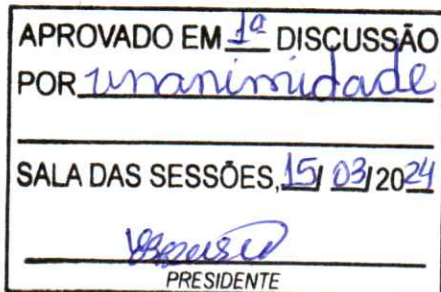 APROVADO EM 1ª DISCUSSÃO
POR unanimidade
SALA DAS SESSÕES, 15/03/2024
PRESIDENTE